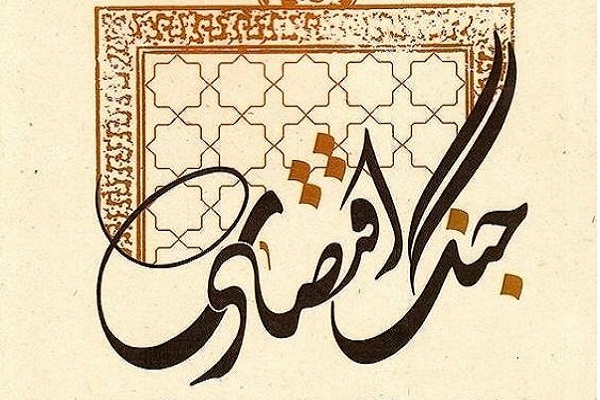 جنگ اقتصادی